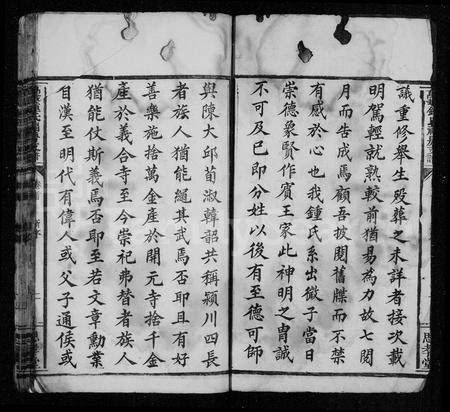 議重修舉生歿葬之未詳者接次載
明駕輕就熟較前猶易為力故七閱
月而告成焉顧吾披閱舊牒而不禁
有感於心也我鍾氏系出微子當日
崇德象賢作賓王家此神明之胄誠
不可及已即分姓以後有至德可師
與陳大邱荀淑韓韶共稱潁川四長
者族人猶能繩其武焉否耶且有好
善樂施捨萬金產於開元寺捨千金
產於義合寺至今崇祀弗替者族人
猶能仗斯義焉否耶至若文章勳業
自漢至明代有偉人或父子通侯或